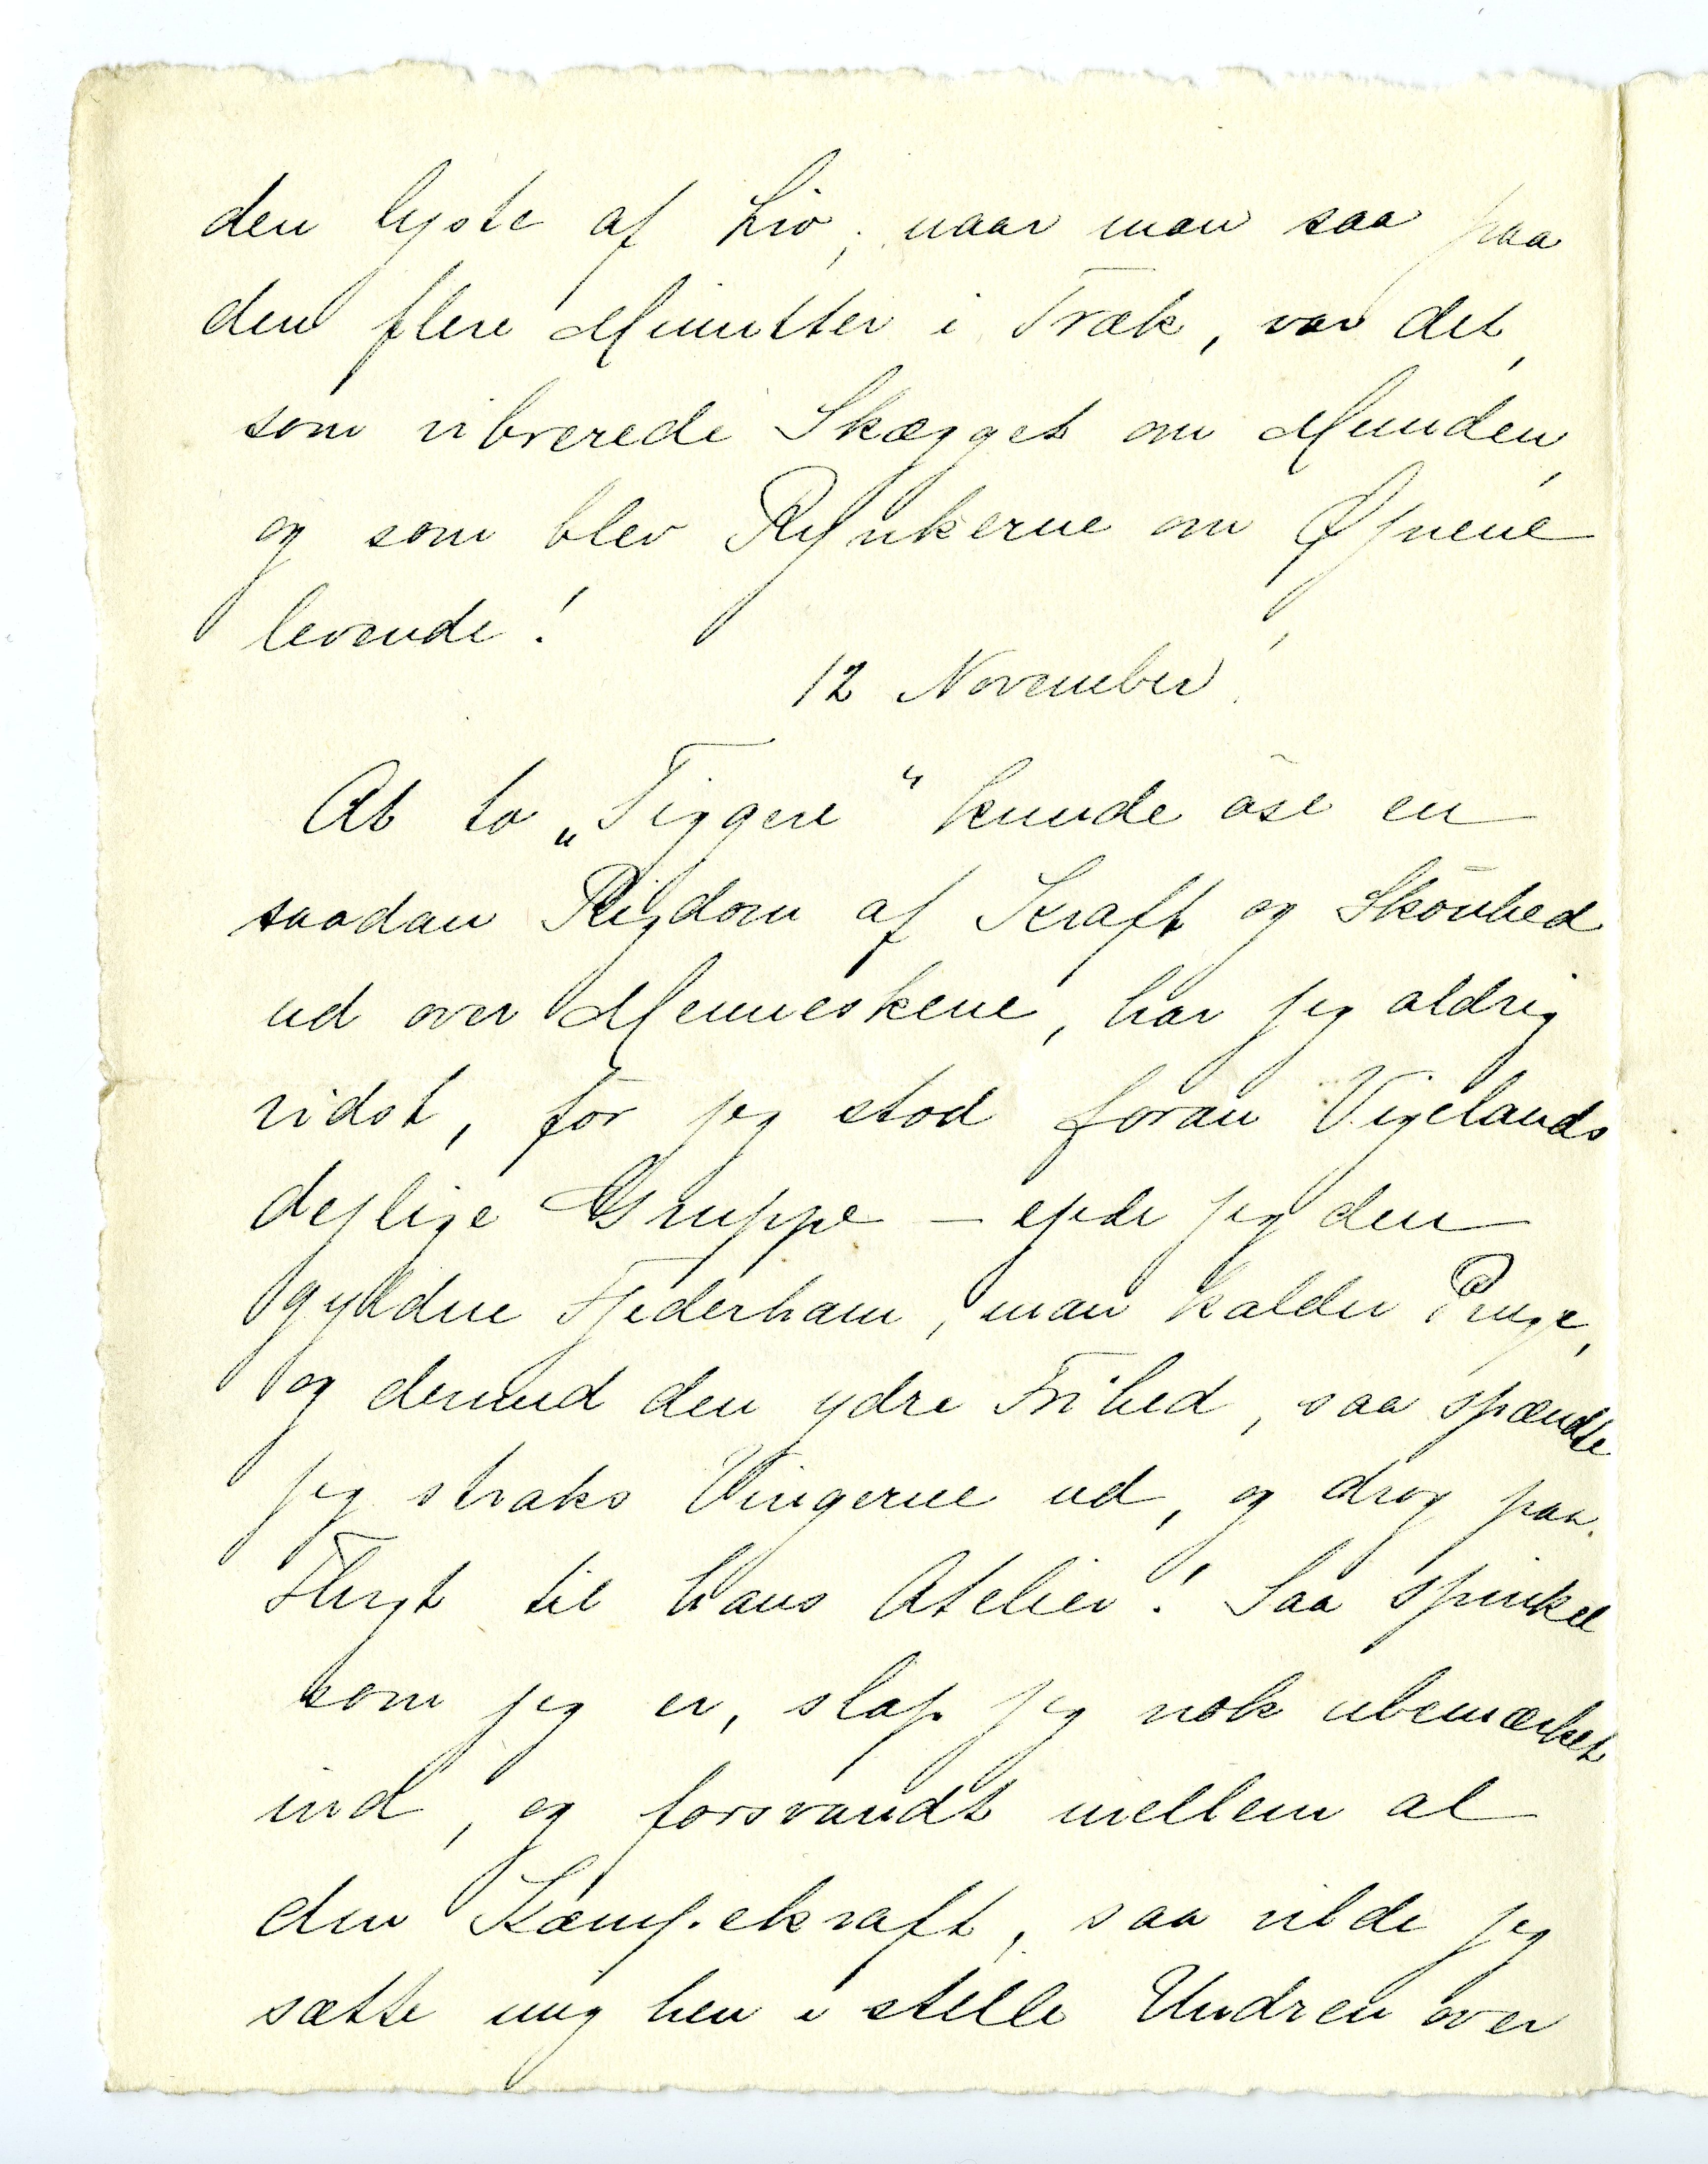 den lyste af Liv; naar man saa paa
den flere Minutter i Træk, var det,
som vibrerede Skægget om Munden,
og som blev Rynkerne om Øjnene
levende!
12 November.
At to „Tiggere" kunde öse en
saadan Rigdom af Kraft og Skönhed
ud over Menneskene, har jeg aldrig
vidst, för jeg stod foran Vigelands
dejlige Gruppe — ejede jeg den
gyldne Fjederham, man kalder Penge,
og dermed den ydre Frihed, saa spændte
jeg straks Vingerne ud, og drog paa
Flugt til hans Atelier! Saa spinkel
som jeg er, slap jeg nok ubemærket
ind, og forsvandt mellem al
den Kæmpekraft, saa vilde jeg
sætte mig hen i stille Undren over